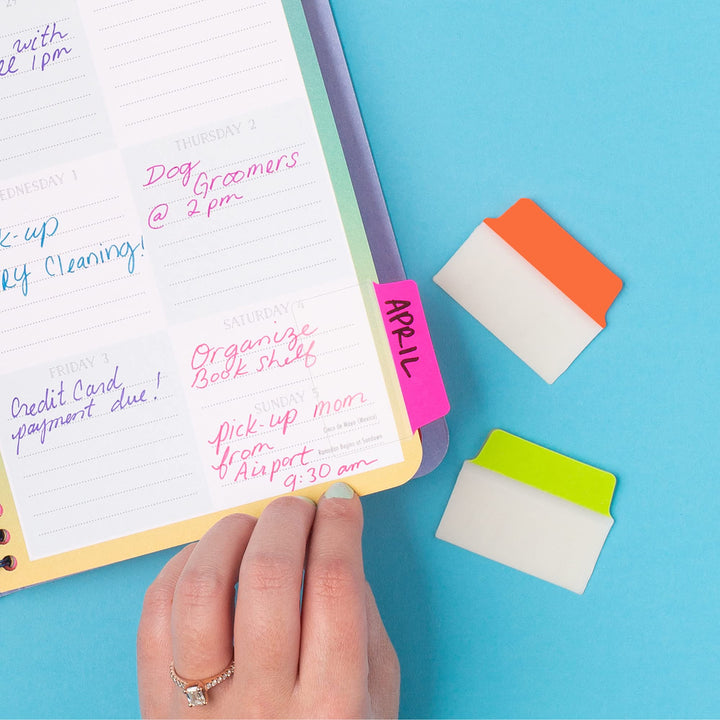 29
with
1pm
THURSDAY 2
Dog
Groomers
@ 2pm
WEDNESDAY 1
k-up
RY Cleaning!
SATURDAY 4
Organize
Book shelf
APRIL
FRIDAY 3
Credit Card
payment due!
SUNDAY 5
Pick-up mom
from
Airport
9:30 am
Cinco De Mayo (Mexico)
Ramadan Begins at Sundown